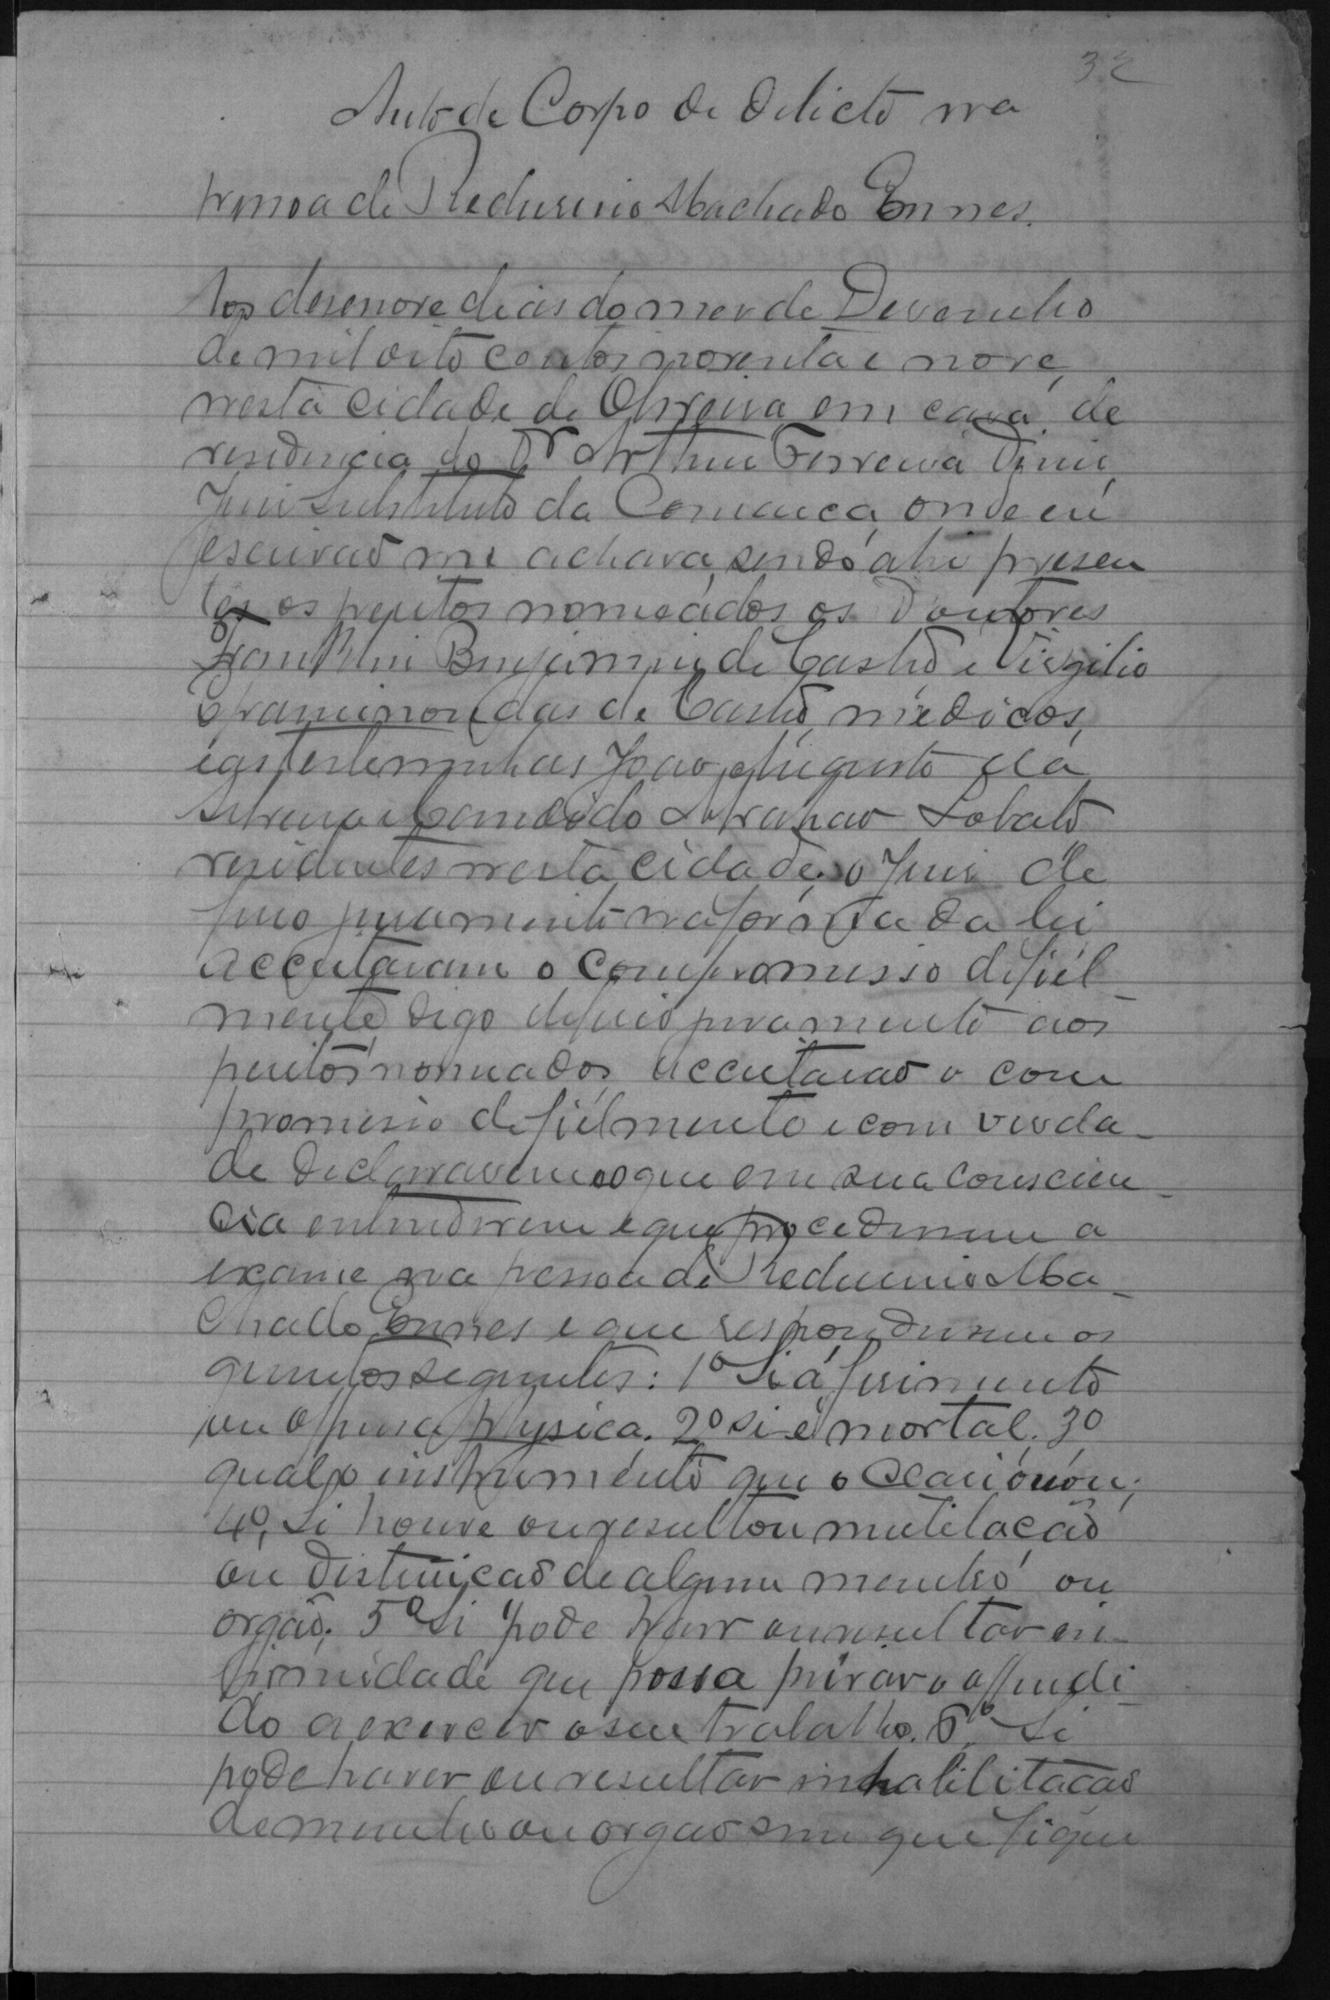 32
Auto de Corpo de Delicto na
pessoa de Reduzino Machado Ennes.
Aos desenove dias do mez de Dezembro
de mil oito centos noventa e nove,
nesta cidade de Oliveira em casa de
residencia do Dr Arthur Ferreira Diniz
Juiz Substituto da Comarca, onde eu
escrivaõ me achava, sendo ahi presen
tes os peritos nomeados os Doutores
Franklin Benjamin de Castro e Virgilio
Epaminondas de Castro, médicos,
e as testemunhas João Augusto da
Silva e Candido Abrahaõ Lobato
residentes nesta cidade, o Juiz de
firio juramento na forma da lei
acceitaram o compromisso de fiel-
mente digo deferio juramento aos
peritos nomeados, acceitaraõ o com
promisso de fielmente e com verda-
de declararem o que em sua conscien-
cia entenderem e que procedessem a
exame na pessoa de Reduzino Ma-
chado Ennes e que respondessem os
quesitos seguintes: 1º Si á ferimento
ou offensa physica. 2º si é mortal. 3º
qual o instrumento que o occasionou;
4º, Si houve ou resultou mutilaçaõ
ou distruiçaõ de algum membro ou
orgaõ; 5º Si pode haver ou resultar en-
firmidade que possa privar o offendi-
do a exercer o seu trabalho. 6º Si
pode haver ou resultar inhabilitaçaõ
de membro ou orgaõ sem que fique